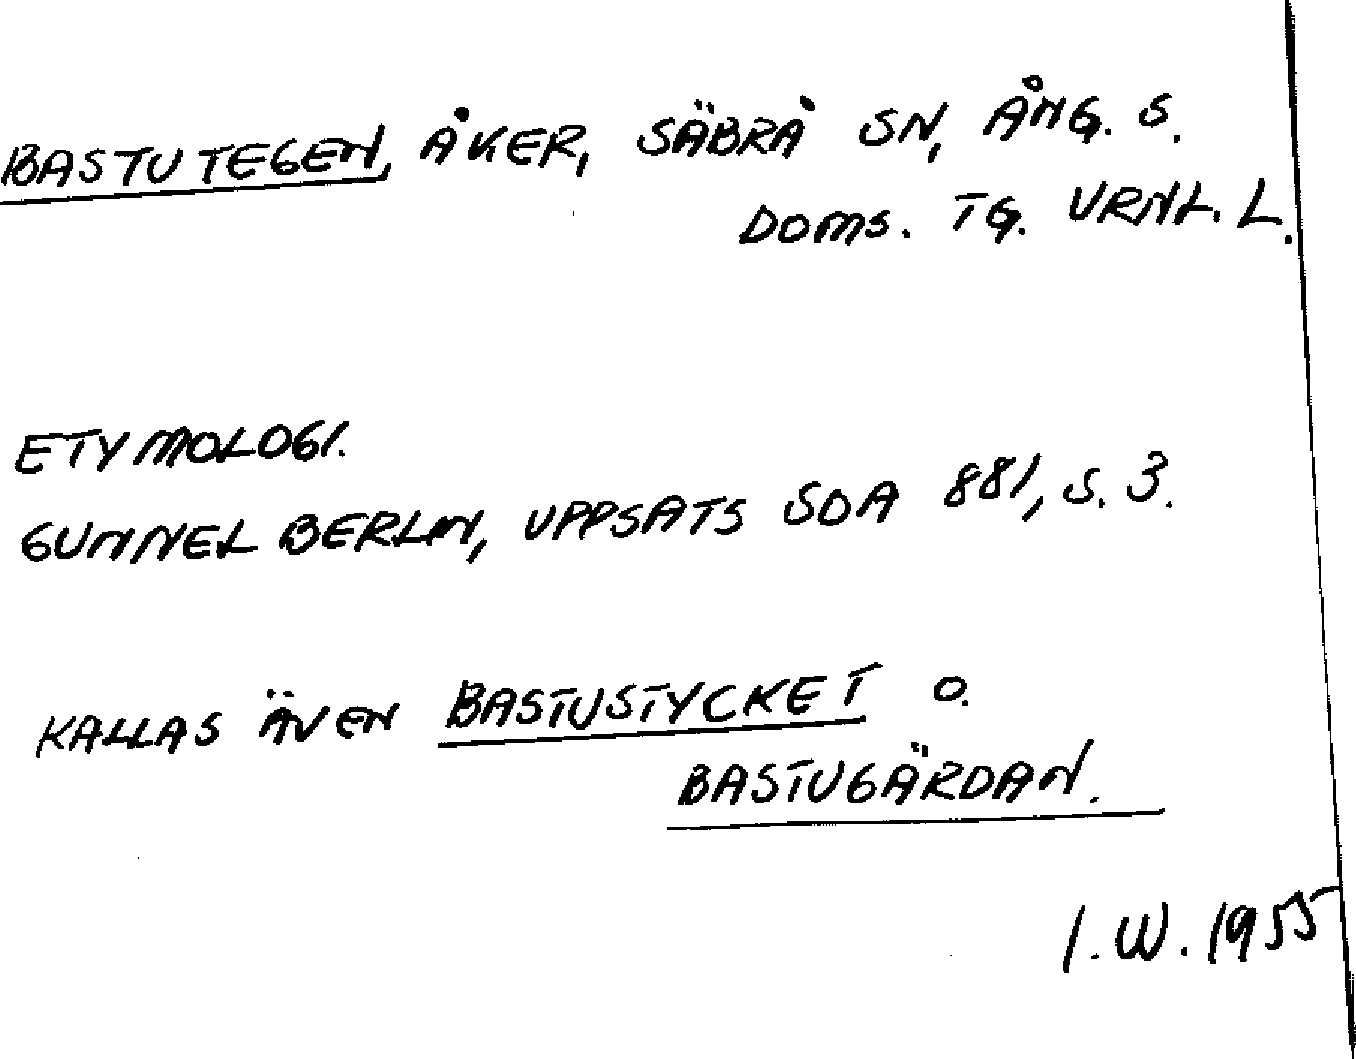 BASTUTEGEN, ÅKER, SÄBRÅ SN, ÅNG. S.
DOMS. TG. VRNL. L.
ETYMOLOGI.
GUNNEL BERLIN, UPPSATS SOA 881, S. 3.
KALLAS ÄVEN BASTUSTYCKET O.
BASTUGÄRDAN.
I. W. 1955